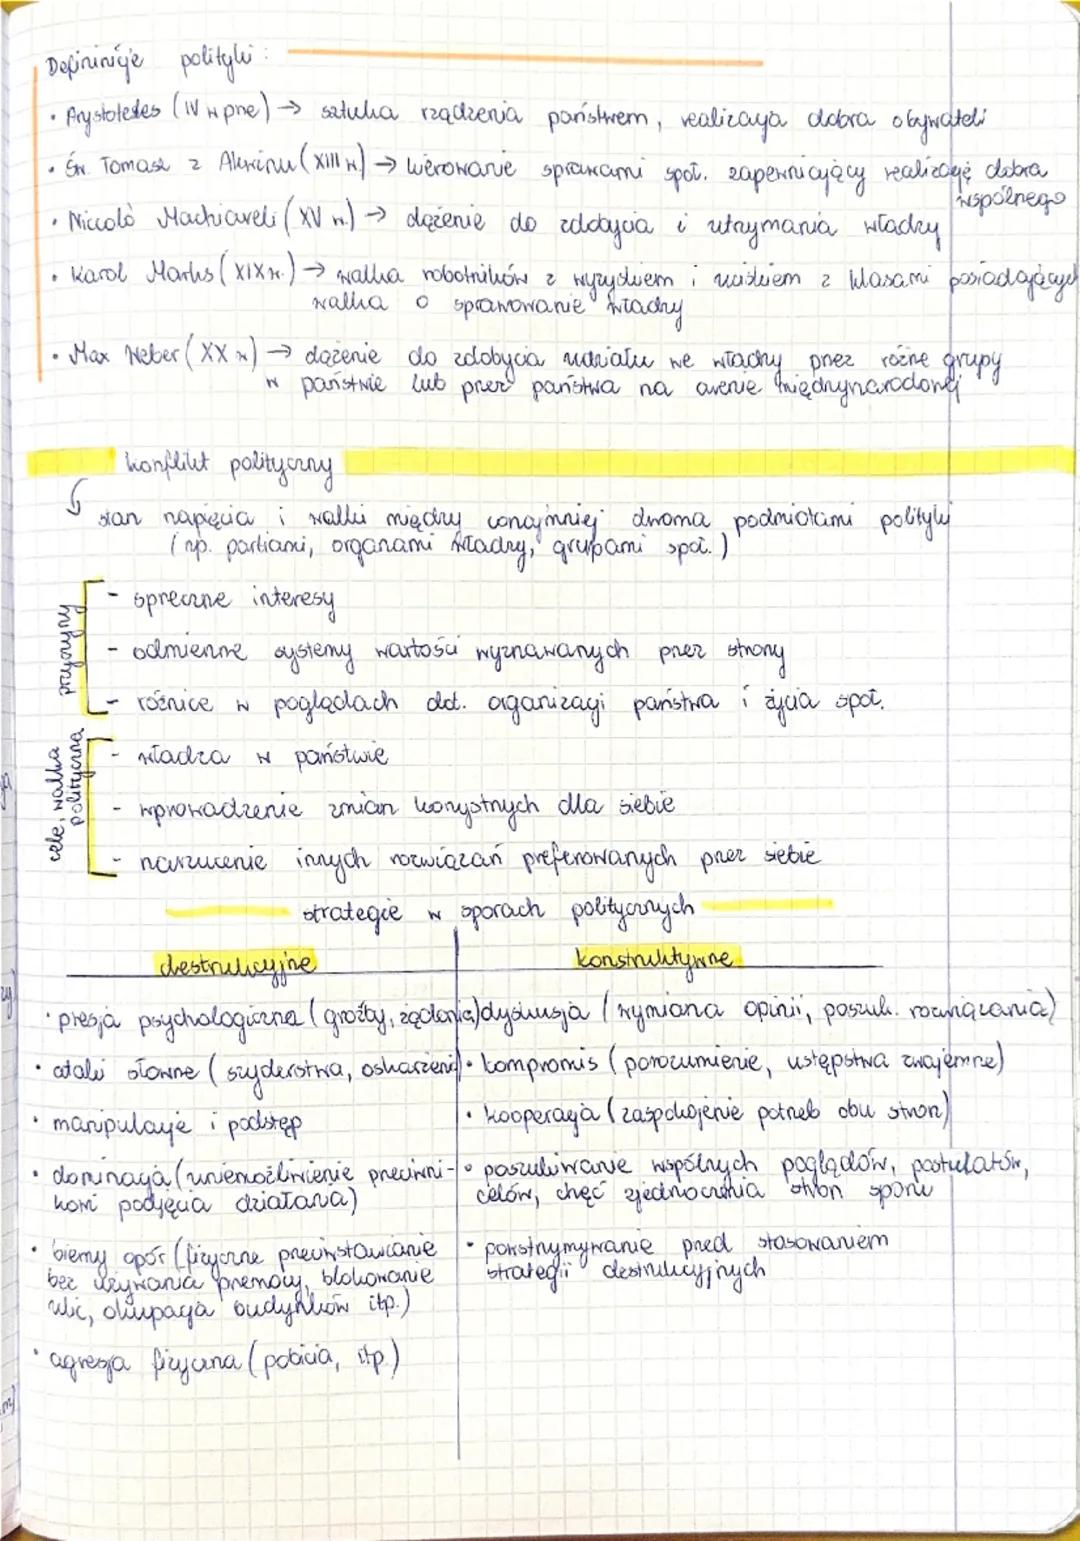 Defininicje polityki :
• Arystoteles (IV w pne) → sztuka rządzenia państwem, realizacja dobra obywateli
• Św. Tomasz z Akwinu (XIII w) → kierowanie sprawami społ. zapewniający realizację dobra
wspólnego
• Niccolò Machiaveli (XV w.) → dążenie do zdobycia i utrzymania władzy
• Karol Marks (XIX w.) → walka robotników z wyzyskiem i uciskiem z klasami posiadającymi
walka o sprawowanie władzy
• Max Weber (XX w) → dążenie do zdobycia udziału we władzy przez różne grupy
w państwie lub przez państwa na arenie międzynarodowej
konflikt polityczny
↳ stan napięcia i walki między conajmniej dwoma podmiotami polityki
(np. partiami, organami władzy, grupami społ.)
przyczyny
- sprzeczne interesy
- odmienne systemy wartości wyznawanych przez strony
- różnice w poglądach dot. organizacji państwa i życia społ.
cele, walka
polityczna
- władza w państwie
- wprowadzenie zmian korzystnych dla siebie
- narzucenie innych rozwiązań preferowanych przez siebie
strategie w sporach politycznych
destrukcyjne
• presja psychologiczna (groźby, żądania)
• ataki słowne (szyderstwa, oskarżenia)
• manipulacje i podstęp
• dominacja (uniemożliwienie przeciwni-
kowi podjęcia działania)
• bierny opór (fizyczne przeciwstawianie
bez używania przemocy, blokowanie
ulic, okupacja budynków itp.)
• agresja fizyczna (pobicia, itp.)
konstruktywne
dyskusja (wymiana opinii, poszuk. rozwiązania)
• kompromis (porozumienie, ustępstwa wzajemne)
• kooperacja (zaspokojenie potrzeb obu stron)
• poszukiwanie wspólnych poglądów, postulatów,
celów, chęć zjednoczenia stron sporu
• powstrzymywanie przed stosowaniem
strategii destrukcyjnych